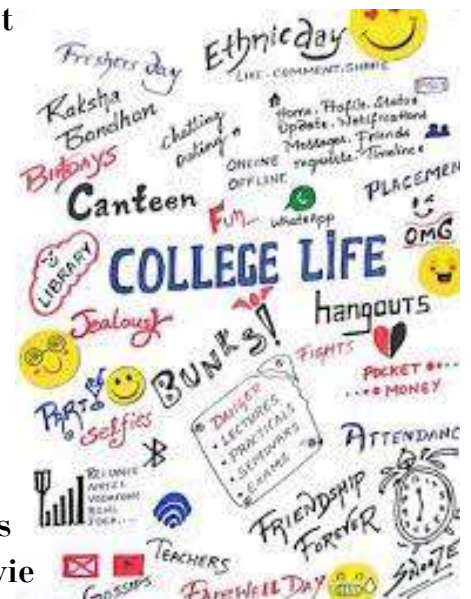 t
Freshers day
Ethnic day
LIKE. COMMENT. SHARE
Raksha
Bandhan
chatting
Dating
Home. Profile. Status
Update. Notifications
Messages. Friends
requests. Timelines
ONLINE
OFFLINE
Birthdays
Canteen
Fun
WhatsApp
PLACEMEN
OMG
LIBRARY
COLLEGE LIFE
hangouts
Jealousy
BUNKS!
FIGHTS
POCKET
MONEY
PARTY
selfies
DANGER
• LECTURES
• PRACTICALS
• SEMINARS
• EXAMS
ATTENDANC
RELIANCE
AIRCEL
VODAFONE
BSNL
IDEA
FRIENDSHIP
FOREVER
SNOOZE
s
TEACHERS
vie
GOSSIPS
FAREWELL DAY